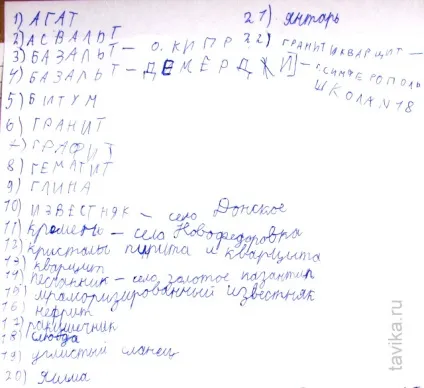 1) АГАТ
2) АСВАЛЬТ
3) БАЗАЛЬТ – О. КИПР
4) БАЗАЛЬТ – ДЕМЕРДЖИ
5) БИТУМ
6) ГРАНИТ
7) ГРАФИТ
8) ГЕМАТИТ
9) ГЛИНА
10) ИЗВЕСТНЯК – село Донское
11) кремень – село Новофедоровка
12) кристалы пирита и кварцита
13) кварцит
14) песчанник – село золотое
15) мраморизированный известняк
16) нефрит
17) ракушечник
18) слюда
19) углистый сланец
20) яшма
21) янтарь
22) ГРАНИТ И КВАРЦИТ –
г. СИМФЕРОПОЛЬ
ШКОЛА N18
tavika.ru